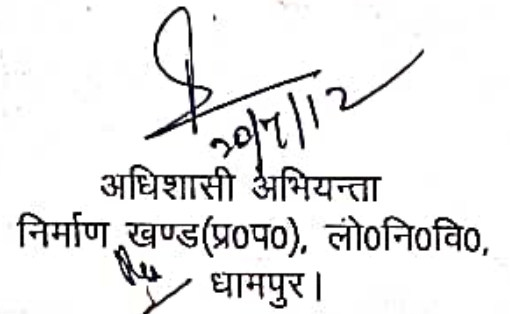 20/7/12
अधिशासी अभियन्ता
निर्माण खण्ड(प्र0प0), लो0नि0वि0,
धामपुर।